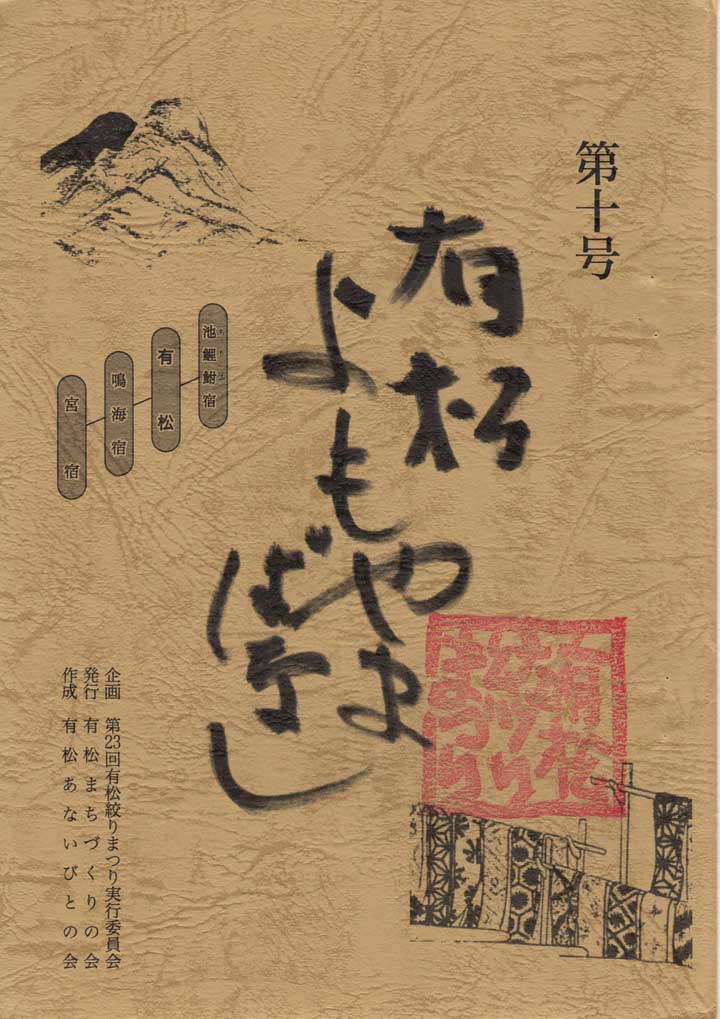 第十号
有松
よもやま
ばなし
池鯉鮒宿
ちりふ
有松
鳴海宿
宮宿
有松
絞り
まつり
企画 第23回有松絞りまつり実行委員会
発行 有松まちづくりの会
作成 有松あないびとの会